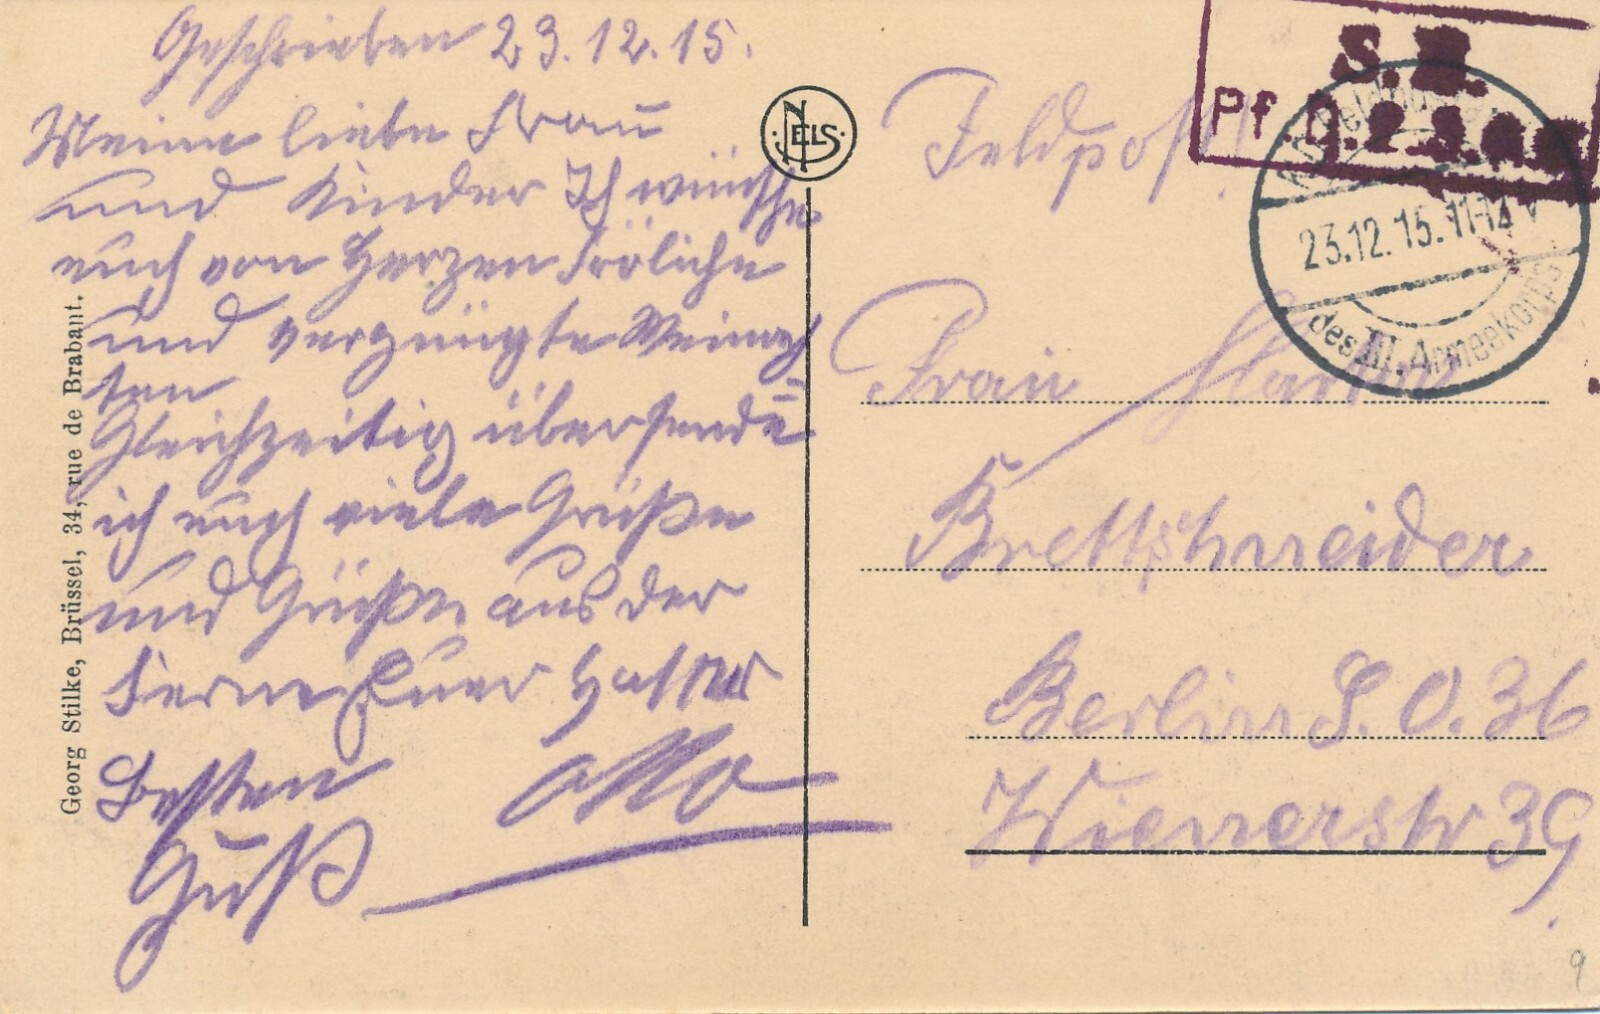 Geschrieben 23.12.15.
Meine liebe Frau
und Kinder Ich wünsche
euch von Herzen Fröliche
und vergnügte Weinach
ten
Gleichzeitig übersende
ich euch viele Grüße
und Grüße aus der
Ferne Euer Vatter
Besten Otto
Gruß
Georg Stilke, Brüssel, 34, rue de Brabant.
NELS
Feldpost!
S.B.
Pf.
23.12.15.11-12 V
des III. Armeekorps
Frau
Brettschneider
Berlin S.O. 36
Wienerstr 39.
9